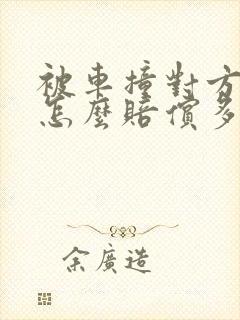 被車撞對方
怎麼賠償多
余廣造